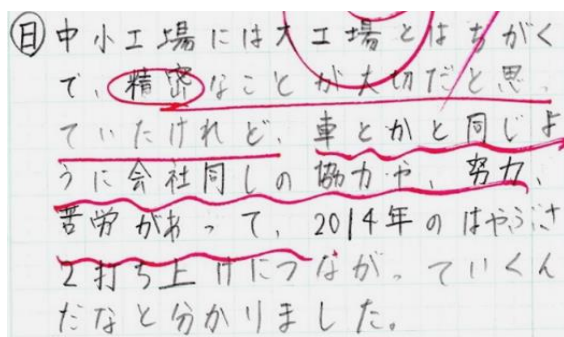 日 中小工場には大工場とはちがく
て、精密なことが大切だと思っ
ていたけれど、車とかと同じよ
うに会社同しの協力や、努力、
苦労があって、2014年のはやぶさ
2打ち上げにつながっていくん
だなと分かりました。